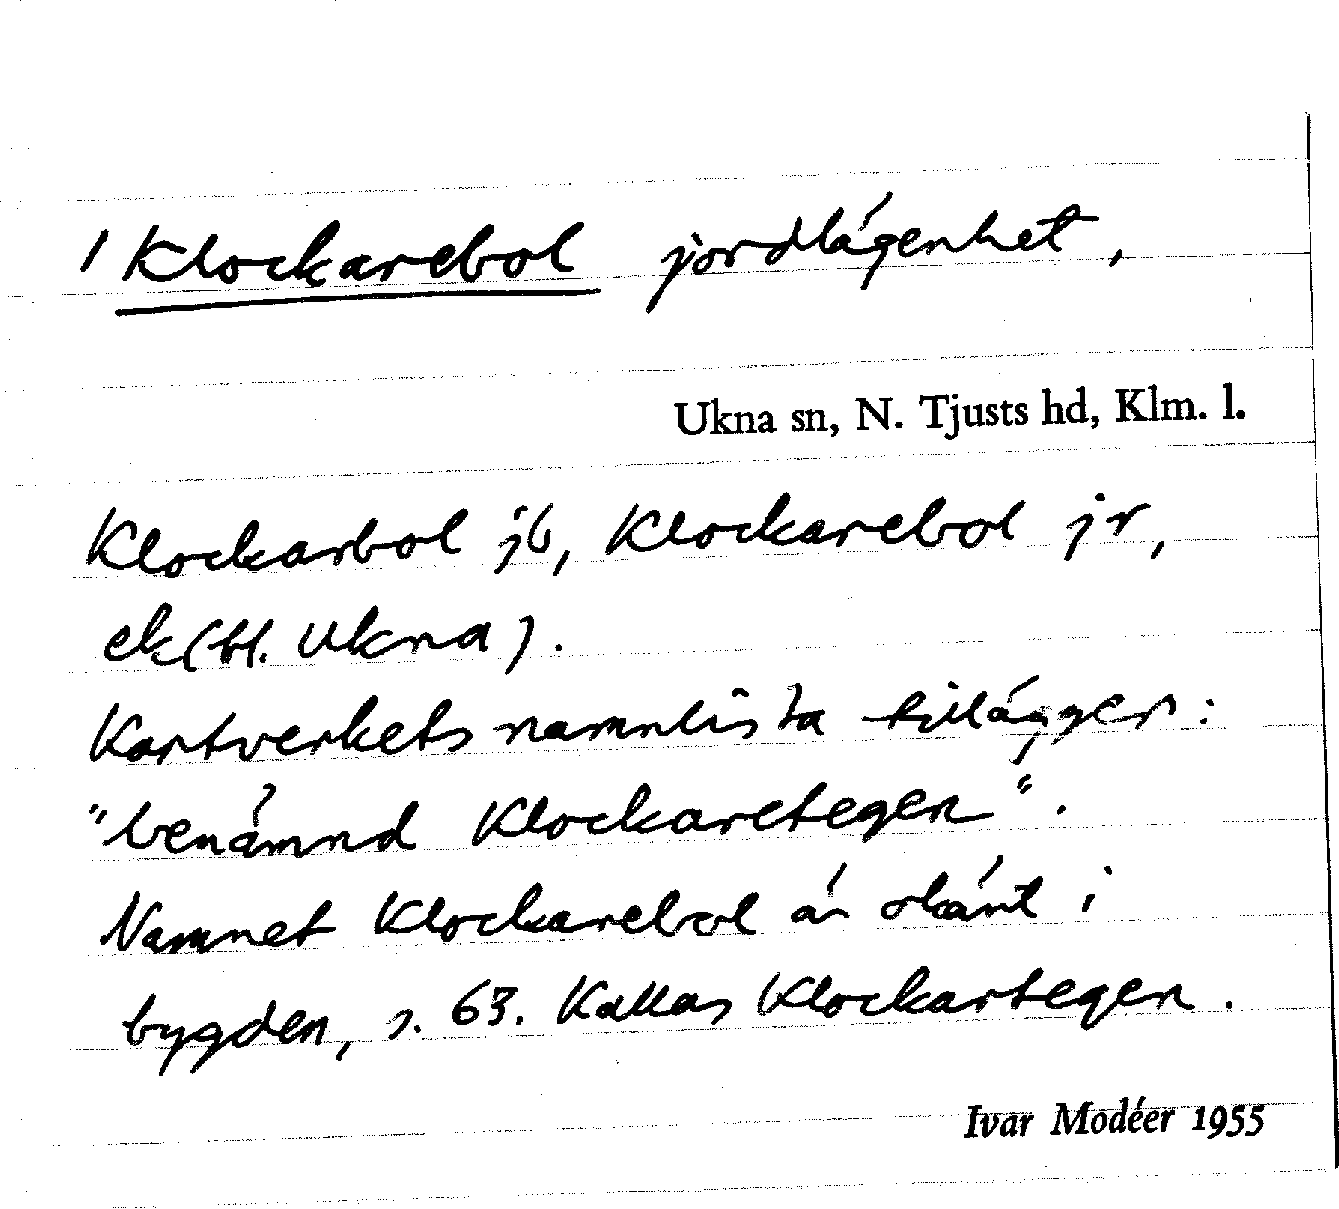 / Klockarebol jordlägenhet,
Ukna sn, N. Tjusts hd, Klm. l.
Klockarbol jb, Klockarebol jr,
ek (bl. Ukna).
Kartverkets namnlista tillägger:
"benämnd Klockaretegen".
Namnet Klockarebol är okänt i
bygden, s. 63. Kallas Klockartegen.
Ivar Modéer 1955